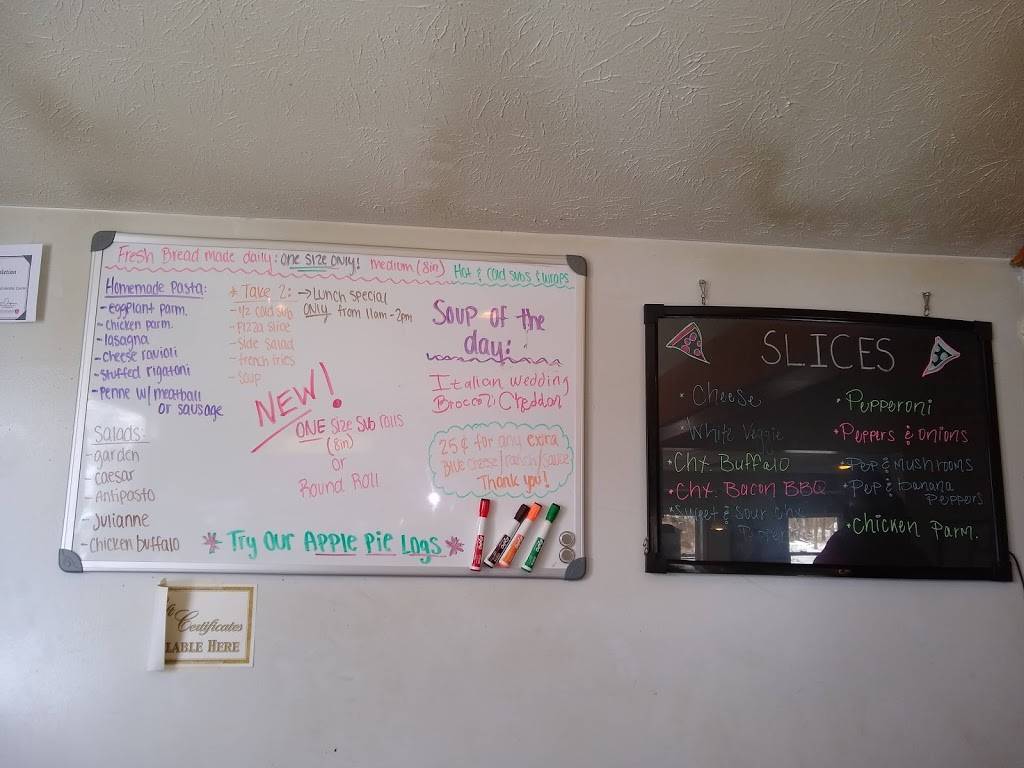 Fresh Bread made daily: one size only! medium (8in) Hot & cold subs & wraps
Homemade Pasta:
- eggplant parm.
- chicken parm.
- lasagna
- cheese ravioli
- stuffed rigatoni
- Penne w/ meatball
or sausage
Salads:
- garden
- caesar
- Antipasto
- Julianne
- chicken buffalo
* Take 2: → Lunch special
only from 11am - 2pm
- 1/2 cold sub
- Pizza slice
- Side Salad
- french fries
- Soup
NEW!
ONE Size Sub rolls
(8in)
or
Round Roll
* Try Our Apple Pie Logs *
Soup of the
day:
Italian wedding
Broccoli Cheddar
25¢ for any extra
Blue cheese/ranch/sauce
Thank you!
Certificates
LABLE HERE
SLICES
* Cheese
* White Veggie
* Chx. Buffalo
* Chx. Bacon BBQ
* Sweet & Sour Chx
* Pepperoni
* Peppers & onions
* Pep & Mushrooms
* Pep & banana
Peppers
* Chicken Parm.